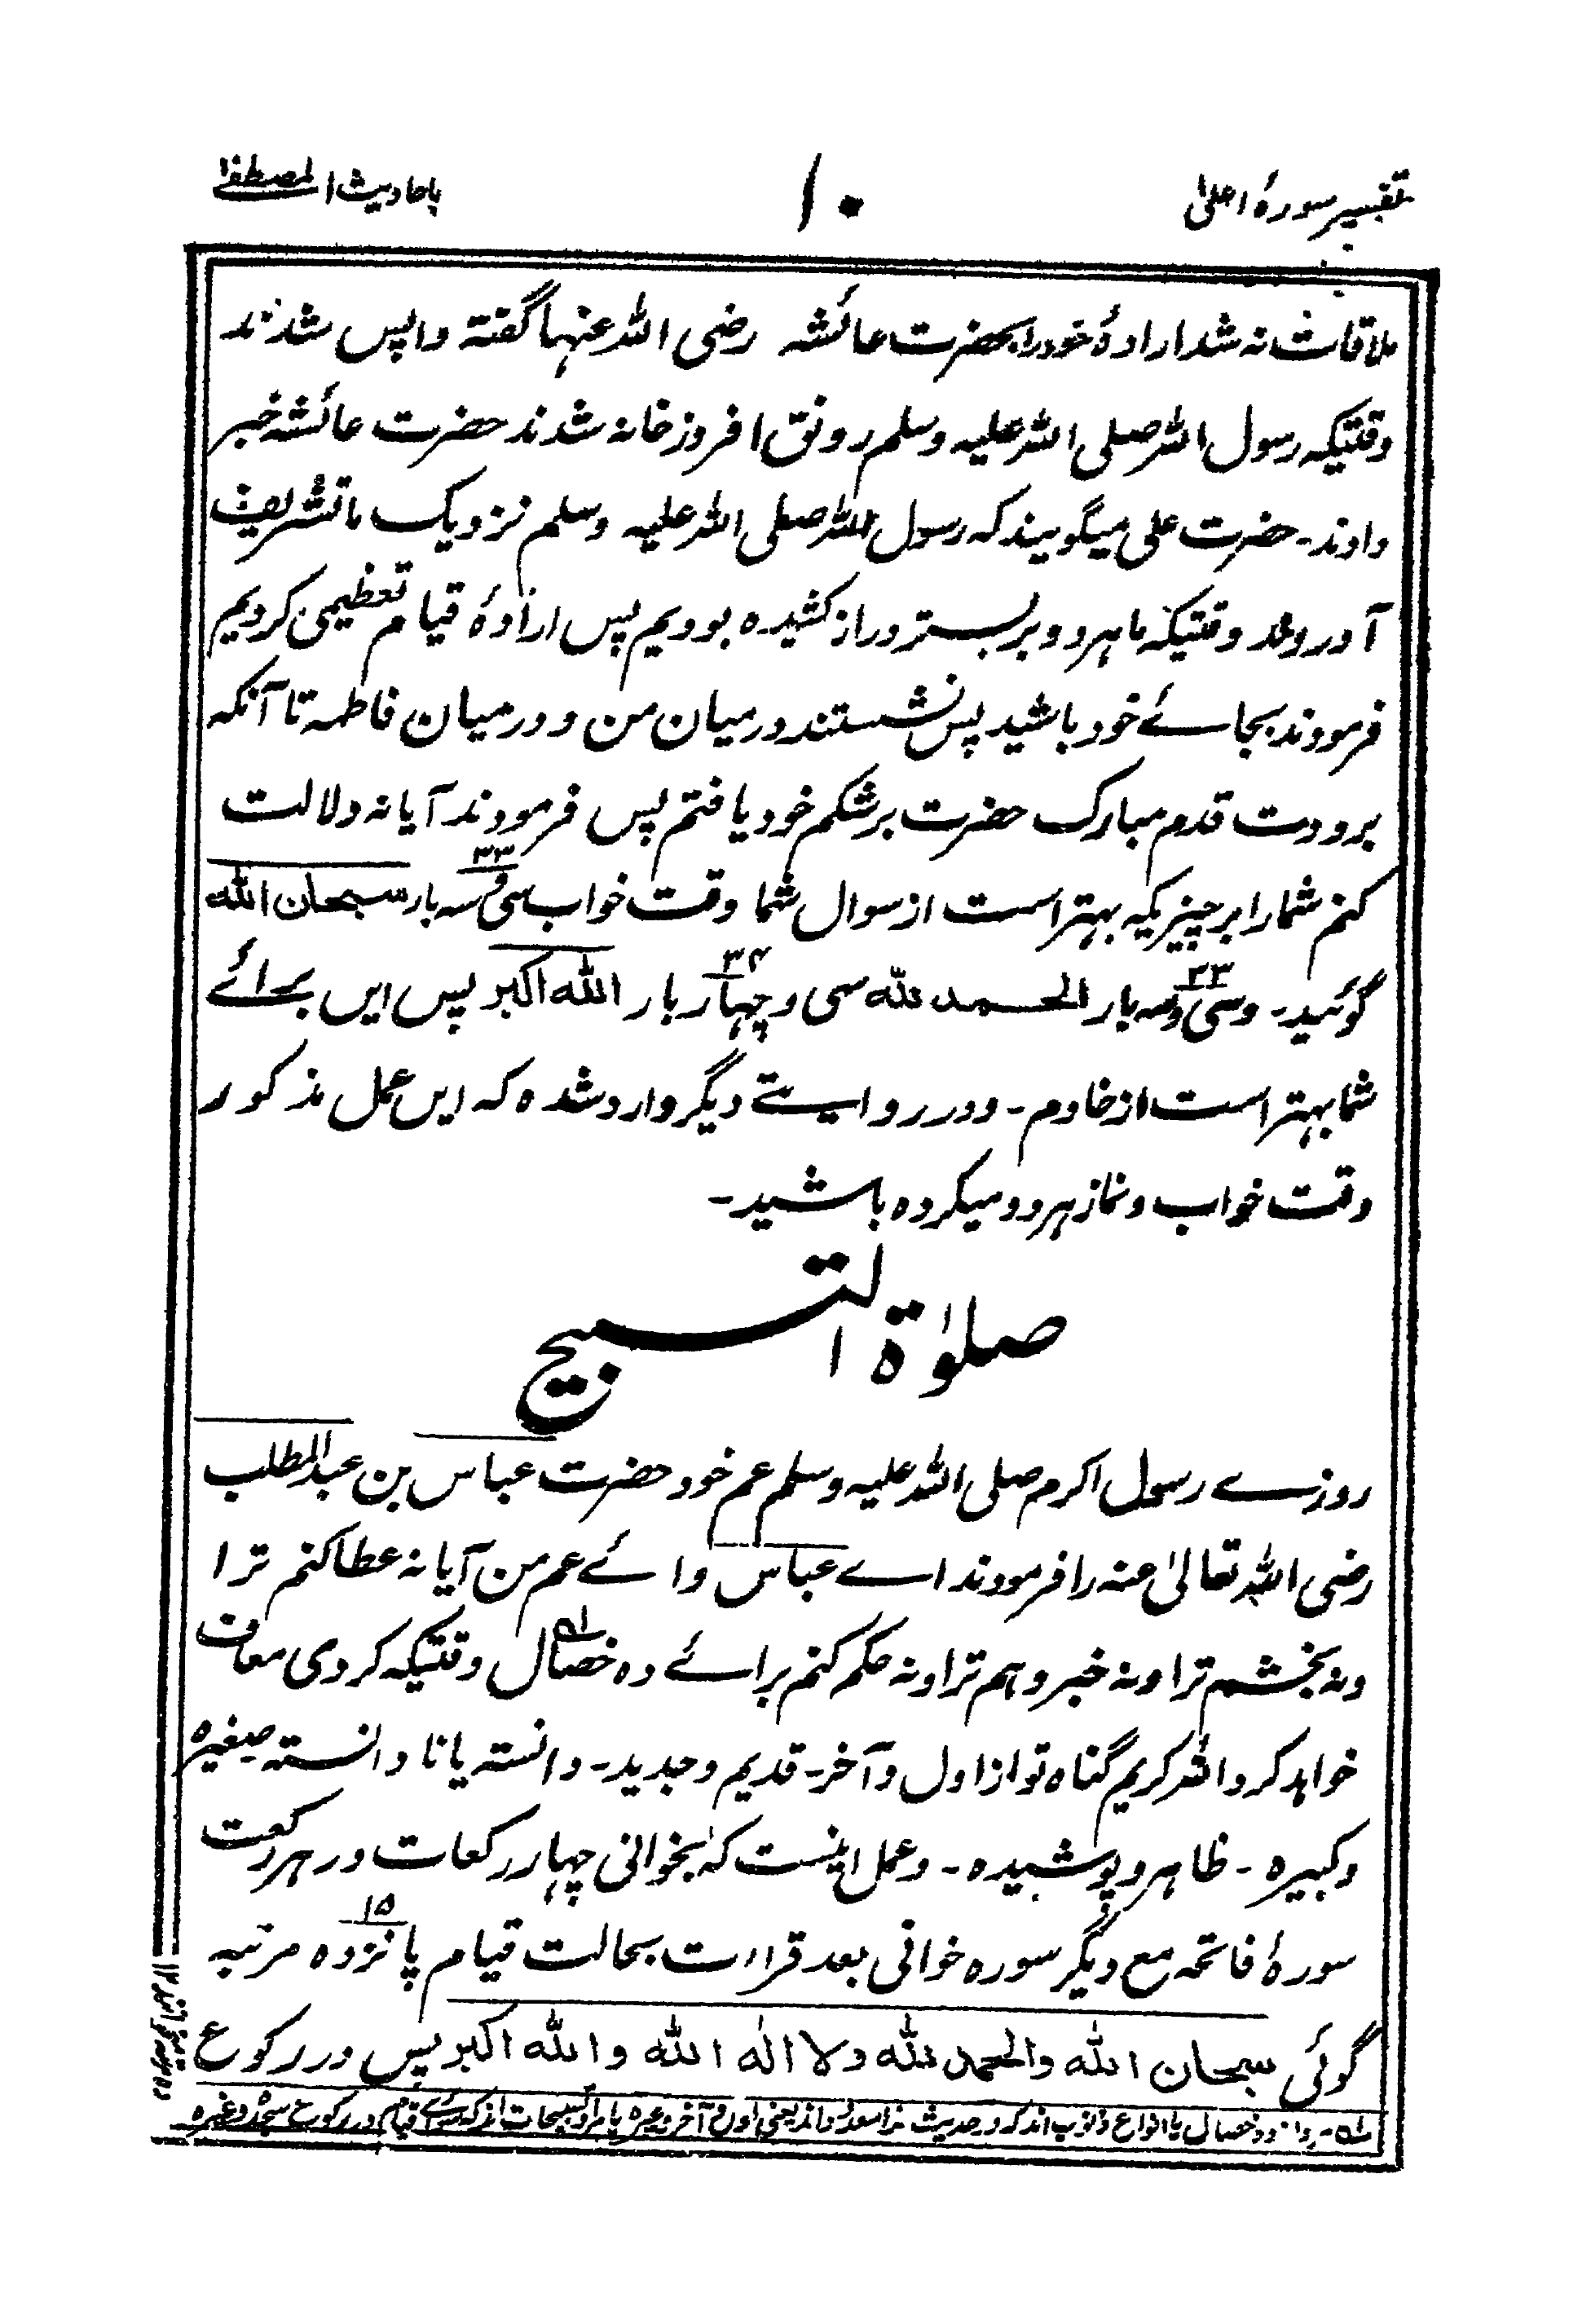 تفسیر سورۂ اعلیٰ
۱۰
باحادیث المصطفےٰ
ملاقات نہ شد ارادۂ خود را بحضرت عائشہ رضی اللہ عنہا گفتہ واپس شدند
وقتیکہ رسول اللہ صلی اللہ علیہ وسلم رونق افروز خانہ شدند حضرت عائشہ خبر
دادند۔ حضرت علی میگویند کہ رسول اللہ صلی اللہ علیہ وسلم نزدیک ما تشریف
آوردند وقتیکہ ما ہر دو بر بستر دراز کشیدہ بودیم پس ارادۂ قیام تعظیمی کردیم
فرمودند بجائے خود باشید پس نشستند درمیان من و درمیان فاطمہ تا آنکہ
برودت قدم مبارک حضرت بر شکم خود یافتم پس فرمودند آیا نہ دلالت
کنم شما را بر چیزیکہ بہتر است از سوال شما وقت خواب سی و سہ ۳۳ بار سبحان اللہ
گوئید۔ و سی و سہ ۳۳ بار الحمد للہ سی و چہار ۳۴ بار اللہ اکبر پس ایں برائے
شما بہتر است از خادم۔ و در روایتے دیگر وارد شدہ کہ ایں عمل مذکور
وقت خواب و نماز ہر دو میکردہ باشید۔
صلوٰۃ التسبیح
روزے رسول اکرم صلی اللہ علیہ وسلم عم خود حضرت عباس بن عبدالمطلب
رضی اللہ تعالیٰ عنہ را فرمودند اے عباس وائے عم من آیا نہ عطا کنم ترا
و نہ بخشم ترا و نہ خبر دہم ترا و نہ حکم کنم برائے دہ خصال وقتیکہ کردی معاف
خواہد کرد اللہ کریم گناہ تو از اول و آخر۔ قدیم و جدید۔ دانستہ یا نادانستہ صغیرہ
و کبیرہ۔ ظاہر و پوشیدہ۔ و عمل اینست کہ بخوانی چہار رکعات در ہر رکعت
سورۂ فاتحہ مع دیگر سورہ خوانی بعد قراءت بحالت قیام پانزدہ ۱۵ مرتبہ
گوئی سبحان اللہ والحمد للہ ولا الہ اللہ واللہ اکبر پس در رکوع
خصال یا انواع ذنوب اند کہ در حدیث یعنی اول و آخر وغیرہ یا مراد تسبیحات اند کہ سوائے قیام در رکوع سجدہ وغیرہ